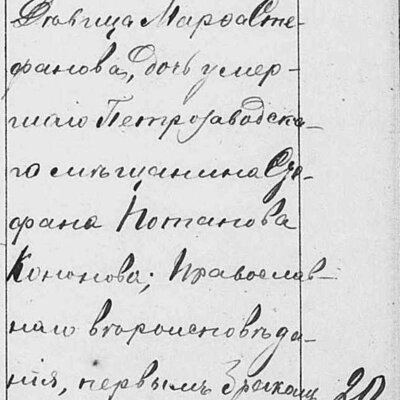 Дѣвица Марѳа Сте-
фанова, дочь умер-
шаго Петрозаводска-
го мѣщанина Сте-
фана Потапова
Кононова; Православ-
наго вѣроисповѣда-
нія, первымъ бракомъ 20